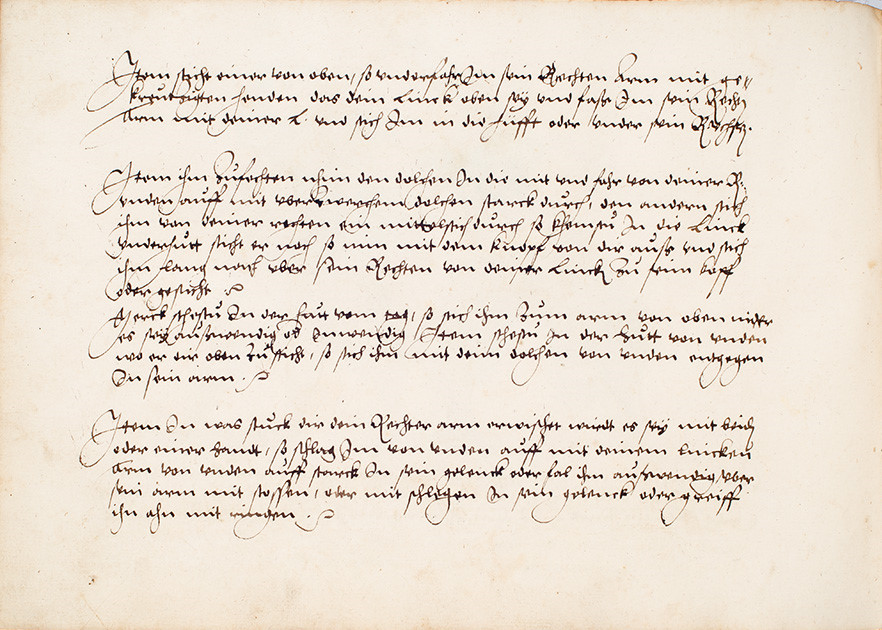 Item sticht einer von oben, so vnderfahr Im sein Rechten Arm mit ge„
kreutzigten henden das dein linck oben sey vnd fasse Im sein Rechten
Arm mit deiner l. vnd stich Im in die hüfft oder vnder sein Rechsen.
Item ihm Zufechten nimm den dolchen In die mit vnd fahr von deiner R.
vnden auff mit vberzwerchem dolchen starck durch, den andern stich
ihm von deiner rechten ein mittelstich durch so khomstu In die linck
vnderhutt sticht er noch so nim mit dem knopf von dir auss vnd stich
ihm lang nach vber sein Rechten von deiner linck Zu seim kopf
oder gesicht
Merck stehstu In der hut vom tag, so stich ihm Zum arm von oben nider
es sey ausswendig od Inwendig Item stehstu In der hutt von vnden
wo er dir oben Zusticht, so stich ihm mit deim dolchen von vnden entgegen
In sein arm.
Item In was stuck dir dein Rechter arm erwischet wurdt es sey mit beid
oder einer handt, so schlag Im von vnden auff mit deinem lincken
Arm von vnden auff starck In sein gelenck oder fal ihm ausswendig vber
sein arm mit stossen, oder mit schlegen In sein gelenck oder greiff
ihn ahn mit ringen.